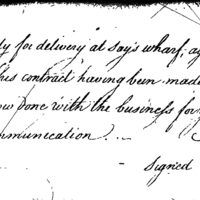 dy for delivery at say's wharf, ag
his contract having been made
ow done with the business for
mmunication...
signed